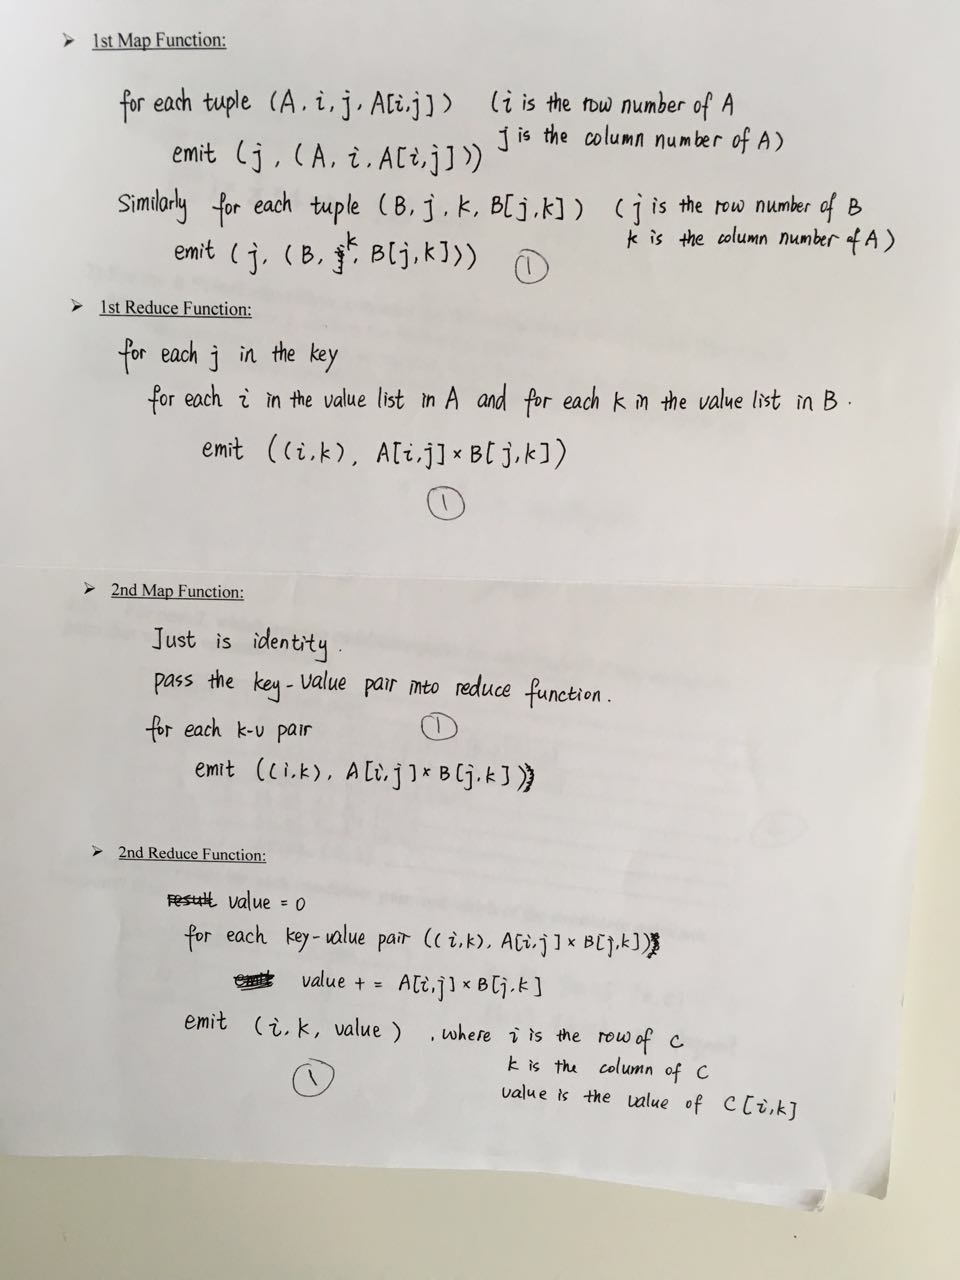 ➢ 1st Map Function:
for each tuple (A, i, j, A[i,j]) (i is the row number of A
j is the column number of A)
emit (j, (A, i, A[i,j]))
Similarly for each tuple (B, j, k, B[j,k]) (j is the row number of B
k is the column number of A)
emit (j, (B, k, B[j,k])) ①
➢ 1st Reduce Function:
for each j in the key
for each i in the value list in A and for each k in the value list in B.
emit ((i,k), A[i,j] × B[j,k])
①
➢ 2nd Map Function:
Just is identity.
pass the key-value pair into reduce function.
for each k-v pair ①
emit ((i,k), A[i,j] × B[j,k])
➢ 2nd Reduce Function:
result value = 0
for each key-value pair ((i,k), A[i,j] × B[j,k])
emit value += A[i,j] × B[j,k]
emit (i, k, value), where i is the row of C
k is the column of C
①
value is the value of C[i,k]